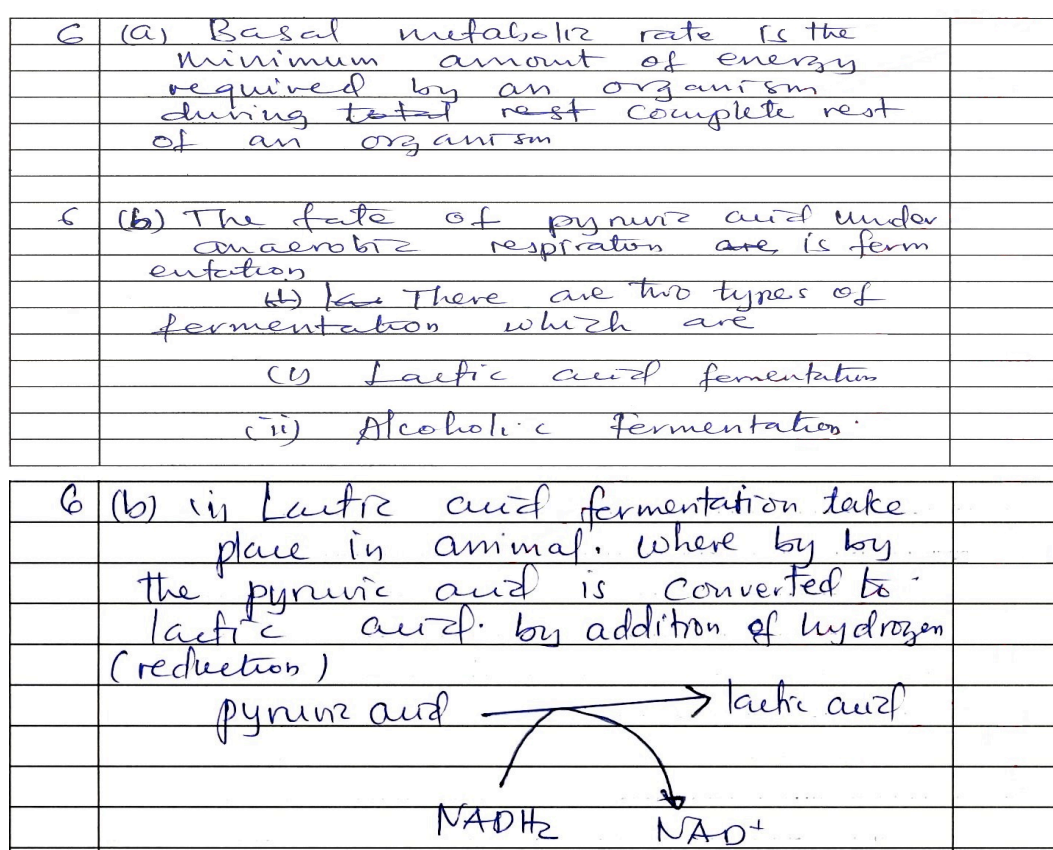 6 (a) Basal metabolic rate is the
minimum amount of energy
required by an organism
during total rest complete rest
of an organism
6 (b) The fate of pyruvic acid under
anaerobic respiration are is ferm
entation
There are two types of
fermentation which are
(i) Lactic acid fementation
(ii) Alcoholic fermentation.
6 (b) (i) Lactic acid fermentation take
place in animal. Where by by
the pyruvic acid is converted to
lactic acid. by addition of hydrogen
(reduction)
pyruvic acid → lactic acid
NADH2 NAD+